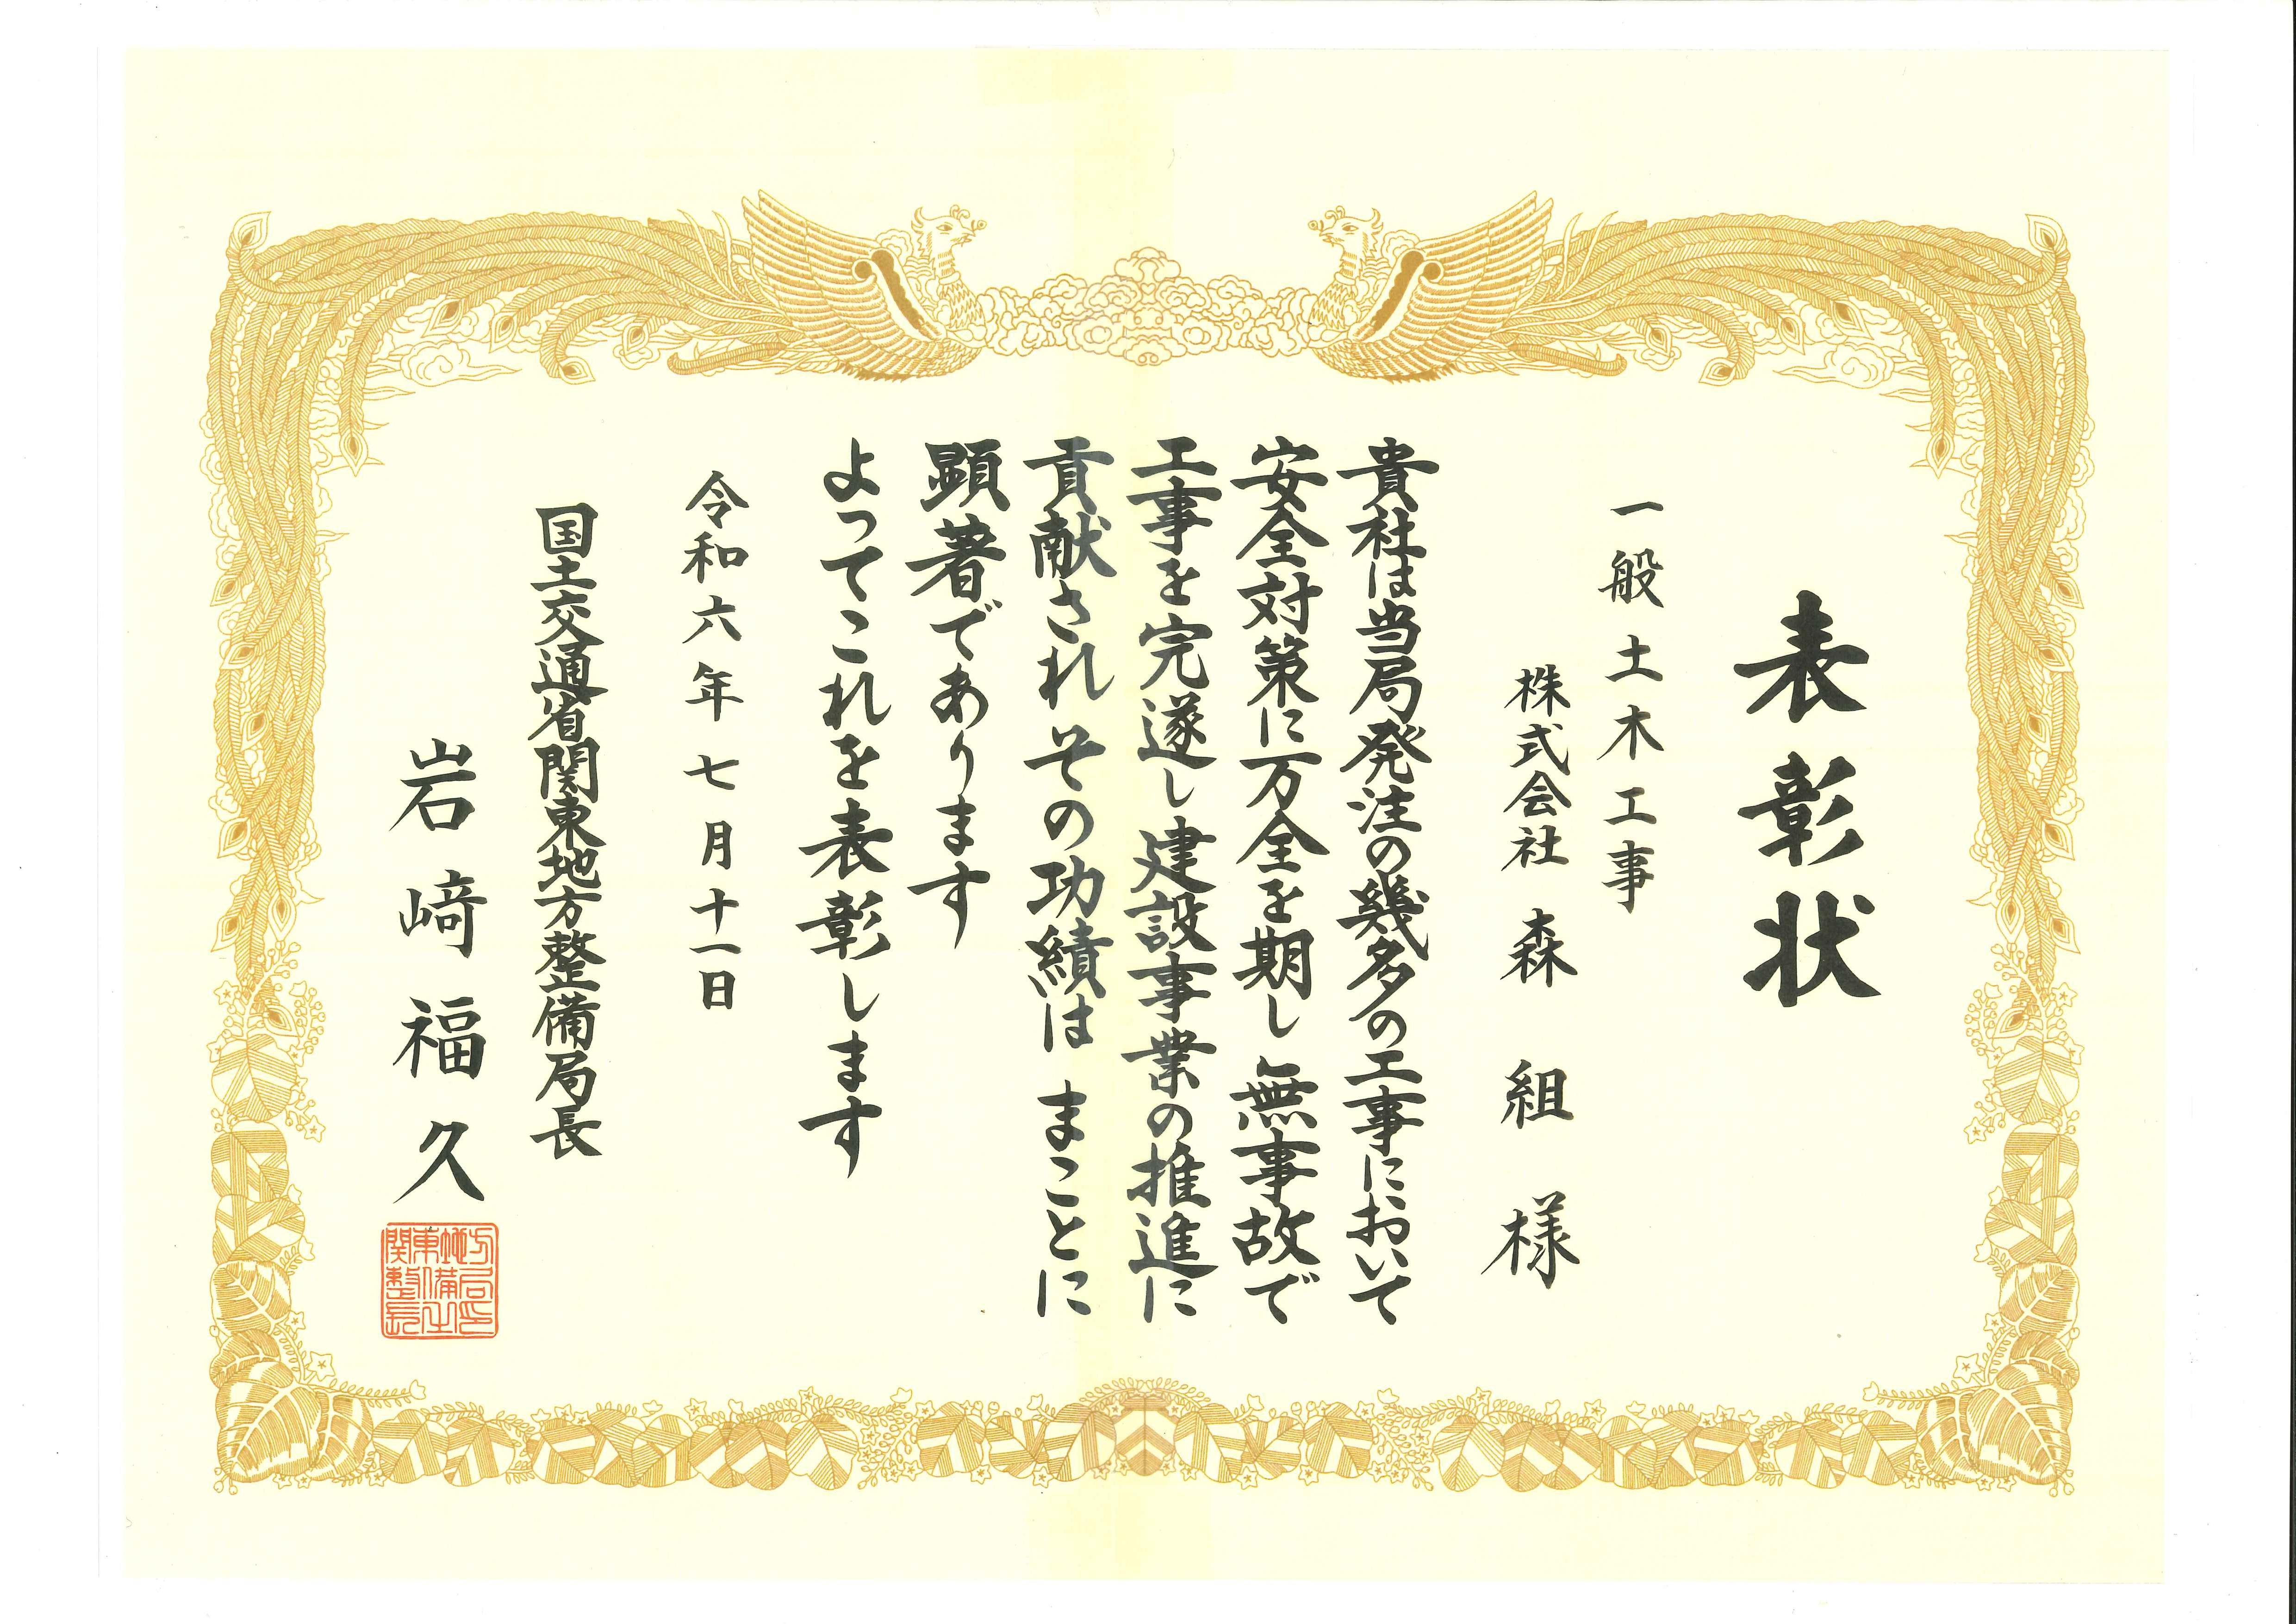 表彰状
一般土木工事
株式会社 森組 様
貴社は当局発注の幾多の工事において
安全対策に万全を期し 無事故で
工事を完遂し 建設事業の推進に
貢献されその功績は まことに
顕著であります
よってこれを表彰します
令和六年七月十一日
国土交通省関東地方整備局長
岩﨑福久
関東地方
整備局
長之印